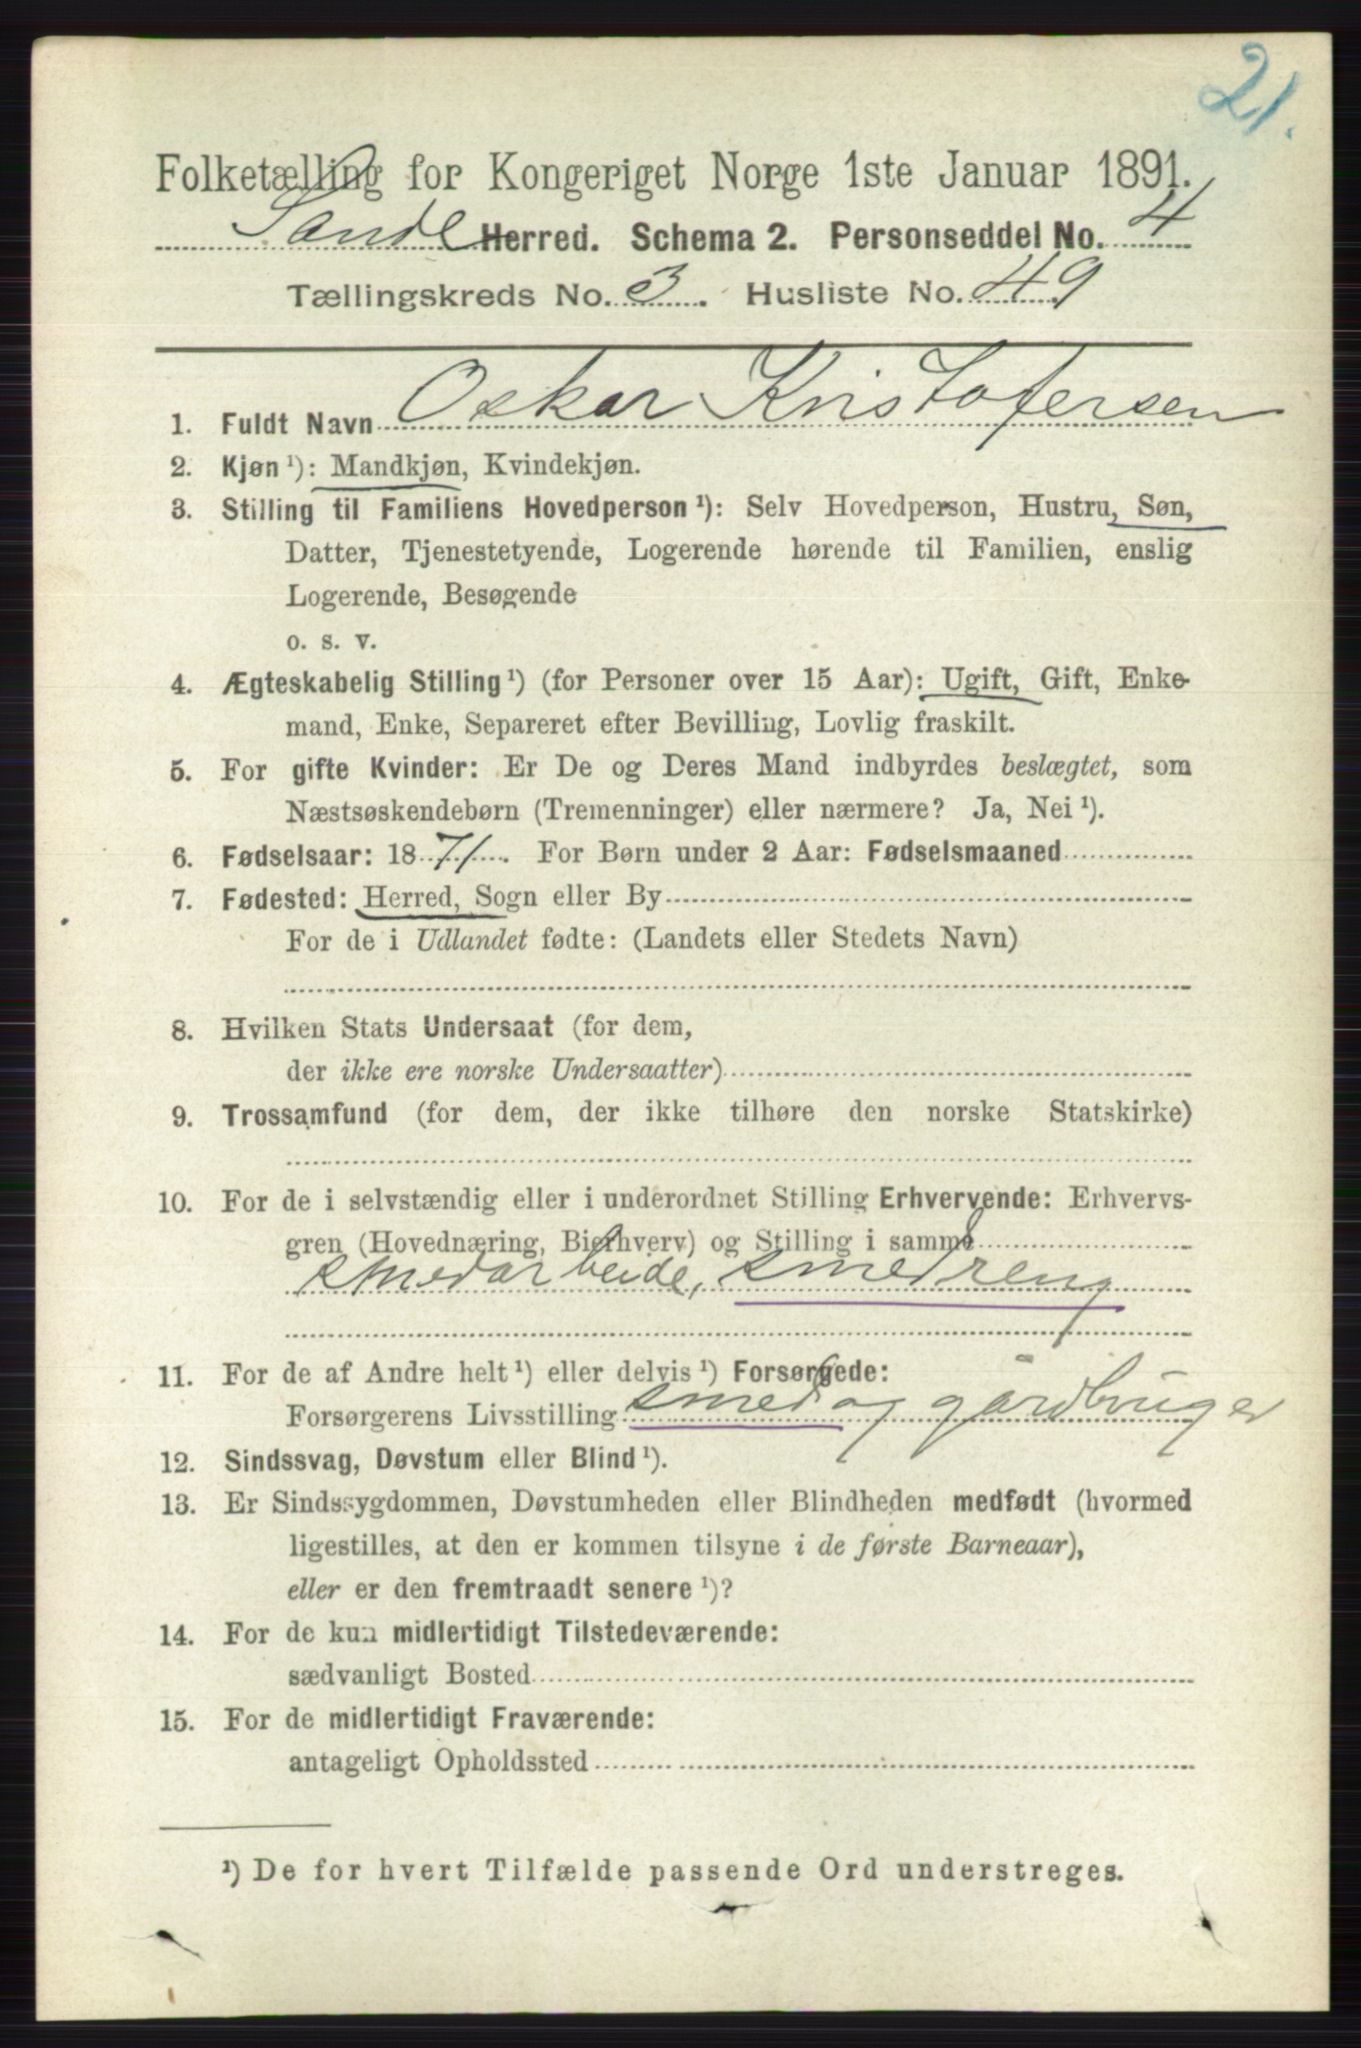 21.
Folketælling for Kongeriget Norge 1ste Januar 1891.
Sande Herred. Schema 2. Personseddel No. 4
Tællingskreds No. 3. Husliste No. 49
1. Fuldt Navn Oskar Kristofersen
2. Kjøn¹): Mandkjøn, Kvindekjøn.
3. Stilling til Familiens Hovedperson¹): Selv Hovedperson, Hustru, Søn,
Datter, Tjenestetyende, Logerende hørende til Familien, enslig
Logerende, Besøgende
o. s. v.
4. Ægteskabelig Stilling¹) (for Personer over 15 Aar): Ugift, Gift, Enke-
mand, Enke, Separeret efter Bevilling, Lovlig fraskilt.
5. For gifte Kvinder: Er De og Deres Mand indbyrdes beslægtet, som
Næstsøskendebørn (Tremenninger) eller nærmere? Ja, Nei¹).
6. Fødselsaar: 1871. For Børn under 2 Aar: Fødselsmaaned
7. Fødested: Herred, Sogn eller By
For de i Udlandet fødte: (Landets eller Stedets Navn)
8. Hvilken Stats Undersaat (for dem,
der ikke ere norske Undersaatter)
9. Trossamfund (for dem, der ikke tilhøre den norske Statskirke)
10. For de i selvstændig eller i underordnet Stilling Erhvervende: Erhvervs-
gren (Hovednæring, Bierhverv) og Stilling i samme
smedarbeide, smedreng
11. For de af Andre helt¹) eller delvis¹) Forsørgede:
Forsørgerens Livsstilling smed og gårdbruger
12. Sindssvag, Døvstum eller Blind¹).
13. Er Sindssygdommen, Døvstumheden eller Blindheden medfødt (hvormed
ligestilles, at den er kommen tilsyne i de første Barneaar),
eller er den fremtraadt senere¹)?
14. For de kun midlertidigt Tilstedeværende:
sædvanligt Bosted
15. For de midlertidigt Fraværende:
antageligt Opholdssted
¹) De for hvert Tilfælde passende Ord understreges.